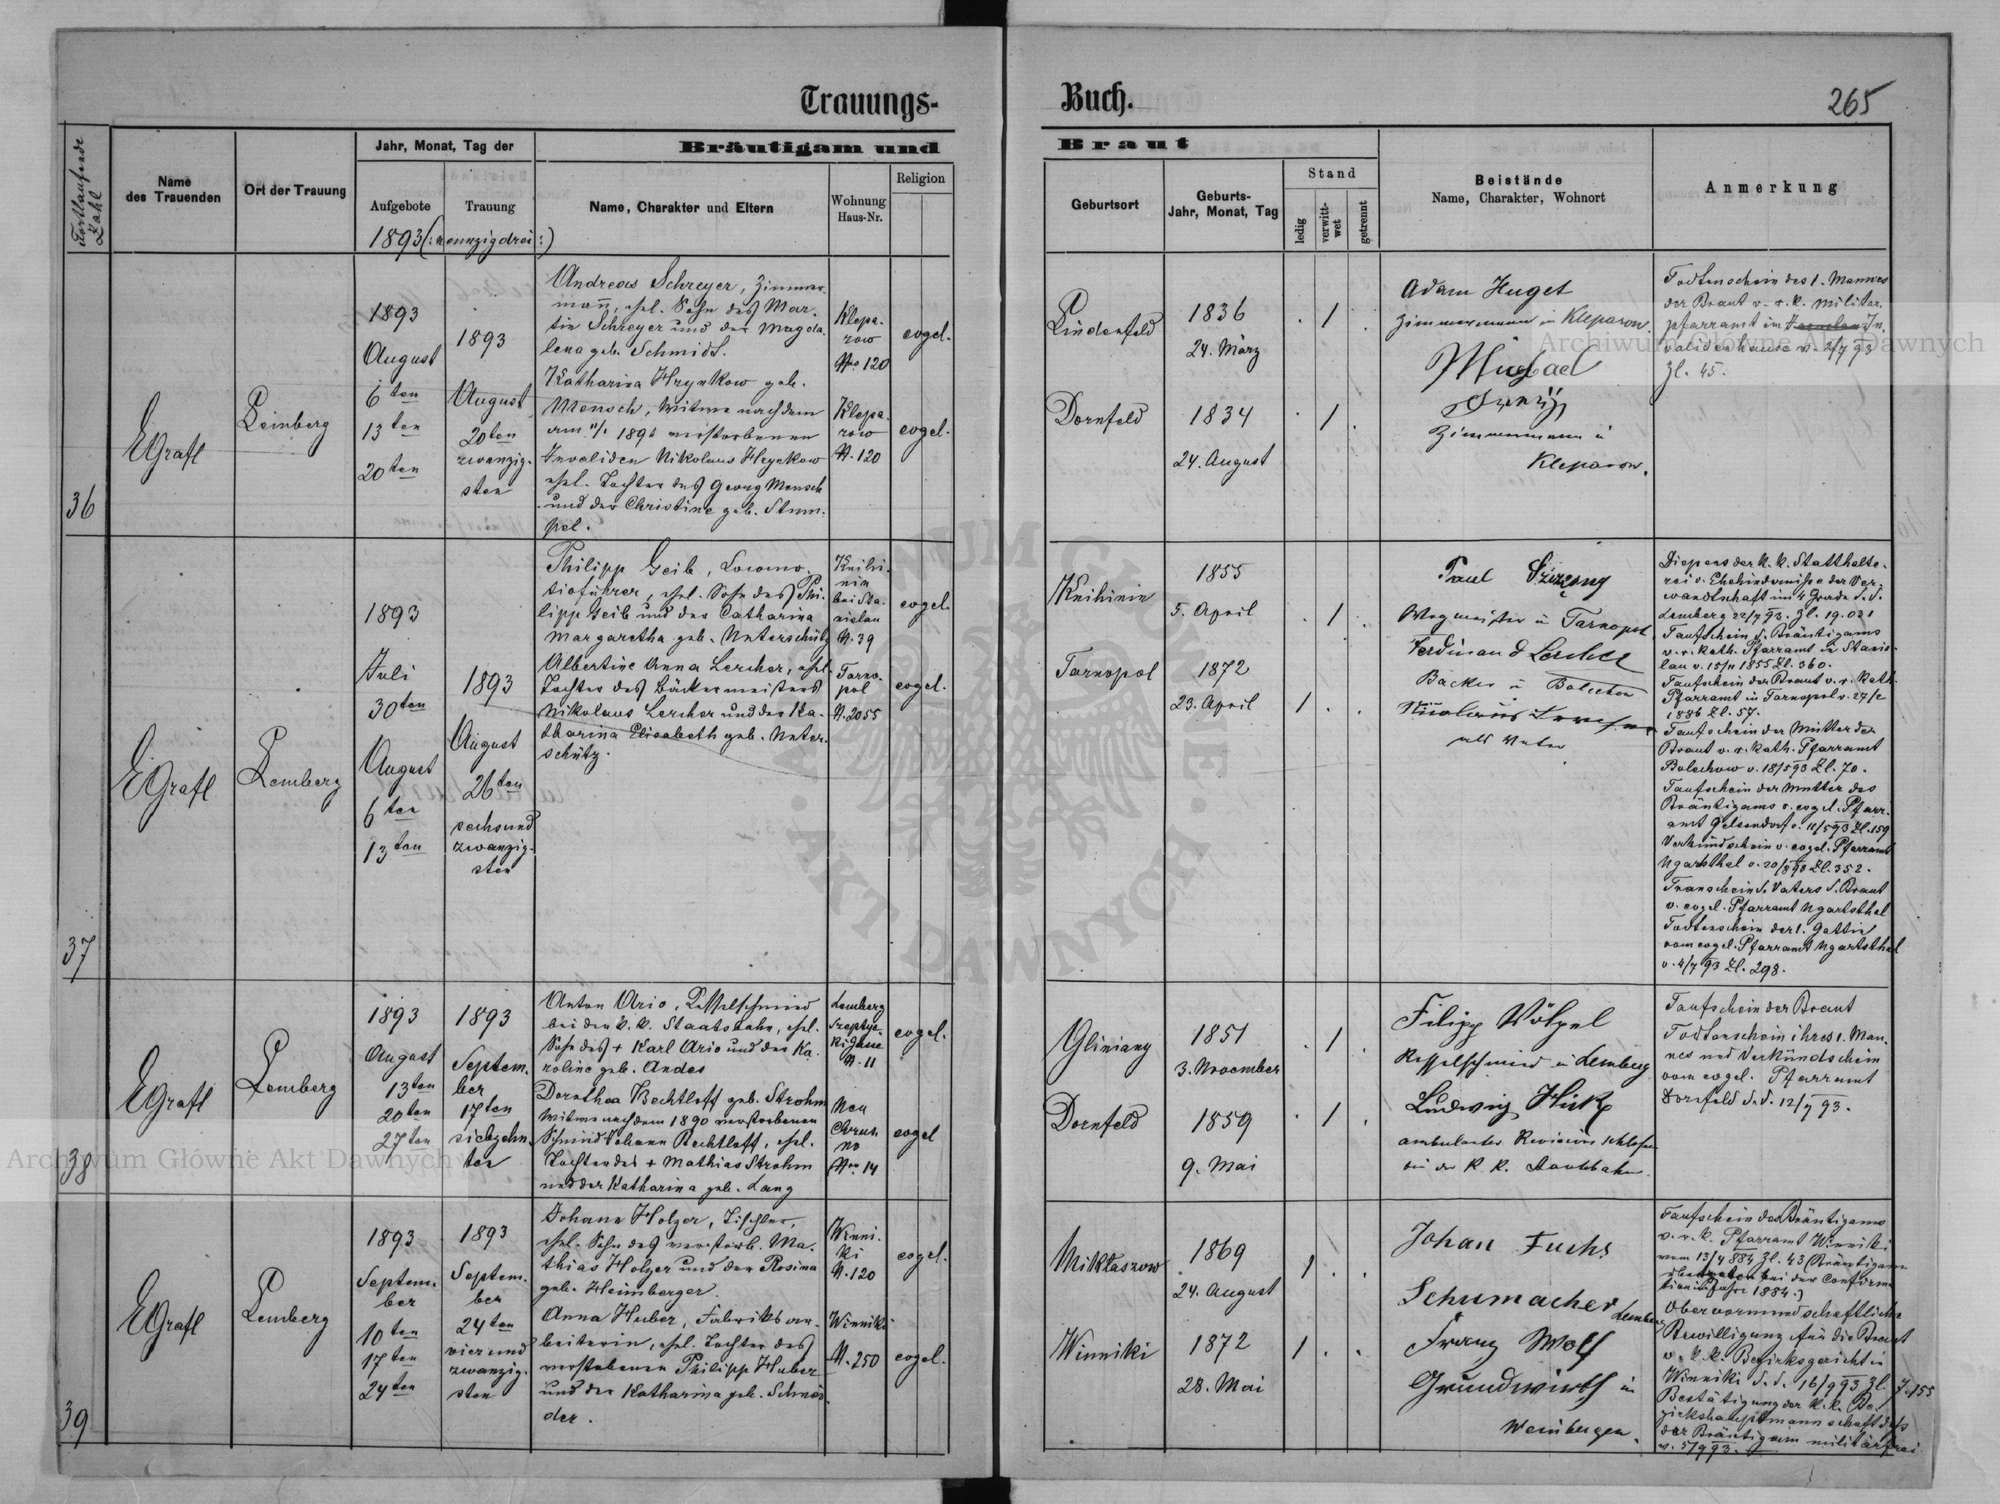 Trauungs-
Buch.
265
Fortlaufende
Zahl
Name
des Trauenden
Ort der Trauung
Jahr, Monat, Tag der
Aufgebote
Trauung
1893 (: neunzigdrei :)
Bräutigam und
Name, Charakter und Eltern
Wohnung
Haus-Nr.
Religion
Braut
Geburtsort
Geburts-
Jahr, Monat, Tag
Stand
ledig
verwitt-
wet
getrennt
Beistände
Name, Charakter, Wohnort
Anmerkung
36
EGrafl
Lemberg
1893
August
6ten
13ten
20ten
1893
August
20ten
zwanzig-
sten
Andreas Schreyer, Zimmer-
mann, ehel. Sohn des Mar-
tin Schreyer und der Magda-
lena geb. Schmidt.
Klepa-
row
Nro 120
evgel.
Katharina Hrynkow geb.
Mensch, Witwe nach dem
verstorbenen
Invaliden Nikolaus Hrynkow
ehel. Tochter des Georg Mensch
und der Christine geb. Stem-
pel.
Klepa-
row
N. 120
evgel.
Lindenfeld
1836
24. März
1
Dornfeld
1834
24. August
1
Adam Huget
Zimmermann in Kleparow.
Michael
Zimmermann in
Kleparow.
Todtenschein des 1. Mannes
der Braut v. r. k. Militär-
pfarramt im In-
validenhause v. 2/7 93
Zl. 45.
37
EGrafl
Lemberg
1893
Juli
30ten
August
6ten
13ten
1893
August
26ten
sechsund
zwanzig-
sten
Philipp Geib, Locomo-
tivführer, ehel. Sohn des Phi-
lipp Geib und der Catharina
Margaretha geb. Unterschütz
Knihi-
nin
bei Sta-
nislau
N. 39
evgel.
Albertine Anna Lercher, ehel.
Tochter des Bäckermeisters
Nikolaus Lercher und der Ka-
tharina Elisabeth geb. Unter-
schütz.
Tarno-
pol
N. 2055
evgel.
Knihinin
1855
5. April
1
Tarnopol
1872
23. April
1
Paul
Wegmeister in Tarnopol
Ferdinand Lercher
Backer in Bolechow
Nikolaus Lercher
als Vater
Dispens der k. k. Statthalte-
rei v. Ehehindernisse der Ver-
wandtschaft im 4 Grade d. d.
Lemberg 22/7 93. Zl. 19.031
Taufschein d. Bräutigams
v. r. kath. Pfarramt in Stanis-
lau v. 1855 Zl. 360.
Taufschein der Braut v. r. kath.
Pfarramt in Tarnopol v. 27/2
1886 Zl. 57.
Taufschein der Mutter der
Braut v. r. kath. Pfarramt
Bolechow v. 18/5 93 Zl. 70.
Taufschein der Mutter des
Bräutigams v. evgel. Pfarr-
amt Gelsendorf v. 11/5 93 Zl. 159
Verkündschein v. evgel. Pfarramt
Ugartsthal v. 20/8 93 Zl. 352.
Trauschein d. Vaters d. Braut
v. evgel. Pfarramt Ugartsthal
Todtenschein der 1. Gattin
vom evgel. Pfarramt Ugartsthal
v. 4/7 93 Zl. 298.
38
EGrafl
Lemberg
1893
August
13ten
20ten
27ten
1893
Septem-
ber
17ten
siebzehn-
ten
Anton Ario, Kesselschmied
bei der k. k. Staatsbahn, ehel.
Sohn des + Karl Ario und der Ka-
roline geb. Andes
Lemberg
Szeptyc-
kigasse
N. 11
evgel.
Dorothea Bechtloff geb. Strohm
Witwe nach dem 1890 verstorbenen
Schmied Johann Bechtloff, ehel.
Tochter des + Mathias Strohm
und der Katharina geb. Lang
Neu
Chrus-
no
Nro 14
evgel
Gliniany
1851
3. November
1
Dornfeld
1859
9. Mai
1
Filipp Völpel
Kesselschmied in Lemberg
Ludwig
ambulanter Revisions schlosser
bei der k. k. Staatsbahn.
Taufschein der Braut
Todtenschein ihres 1. Man-
nes und Verkündschein
vom evgel. Pfarramt
Dornfeld d. d. 12/9 93.
39
EGrafl
Lemberg
1893
Septem-
ber
10ten
17ten
24ten
1893
Septem-
ber
24ten
vierund
zwanzig-
sten
Johann Holzer, Tischler,
ehel. Sohn des verstorb. Ma-
thias Holzer und der Rosina
geb. Heimberger.
Winni-
ki
N. 120
evgel.
Anna Huber, Fabriksar-
beiterin, ehel. Tochter des
verstorbenen Philipp Huber
und der Katharina geb. Schnei-
der.
Winniki
N. 250
evgel.
Mikłaszow
1869
24. August
1
Winniki
1872
28. Mai
1
Johan Fuchs
Schumacher Lemberg
Franz Wolf
Grundwirth in
Weinbergen.
Taufschein des Bräutigams
v. r. k. Pfarramt Winniki
vom 13/4 884 Zl. 43 (Bräutigam
übergetreten bei der Confirma
tion im Jahre 1884.)
Obervormundschaftliche
Bewilligung für die Braut
v. k. k. Bezirksgericht in
Winniki d. d. 16/9 93 Zl. 7.155
Bestätigung der k. k. Be-
zirkshauptmannschaft dass
der Bräutigam militärfrei
v. 5/9 93.
Archiwum Główne Akt Dawnych
Archiwum Główne Akt Dawnych
ARCHIWUM GŁÓWNE
AKT DAWNYCH